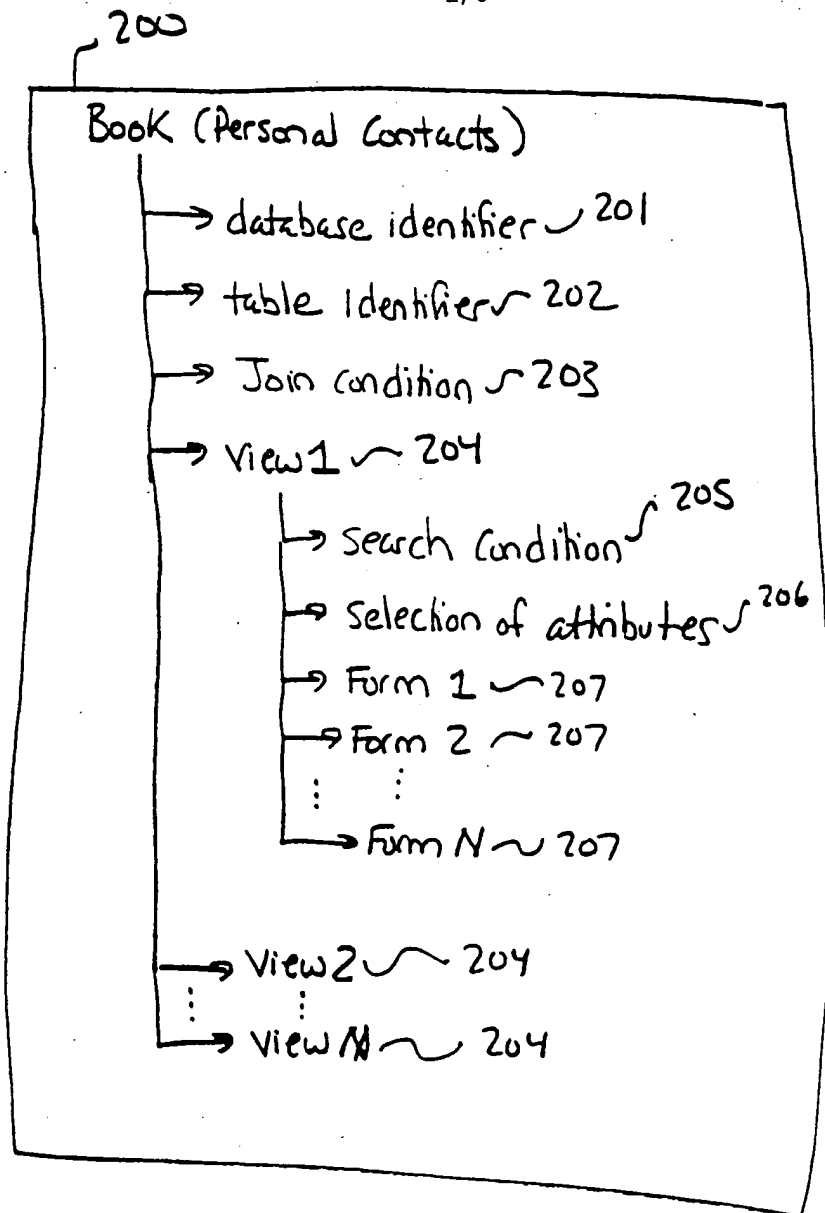 200
Book (Personal Contacts)
database identifier 201
table identifier 202
Join condition 203
View 1 204
Search Condition 205
Selection of attributes 206
Form 1 207
Form 2 207
Form N 207
View 2 204
View N 204